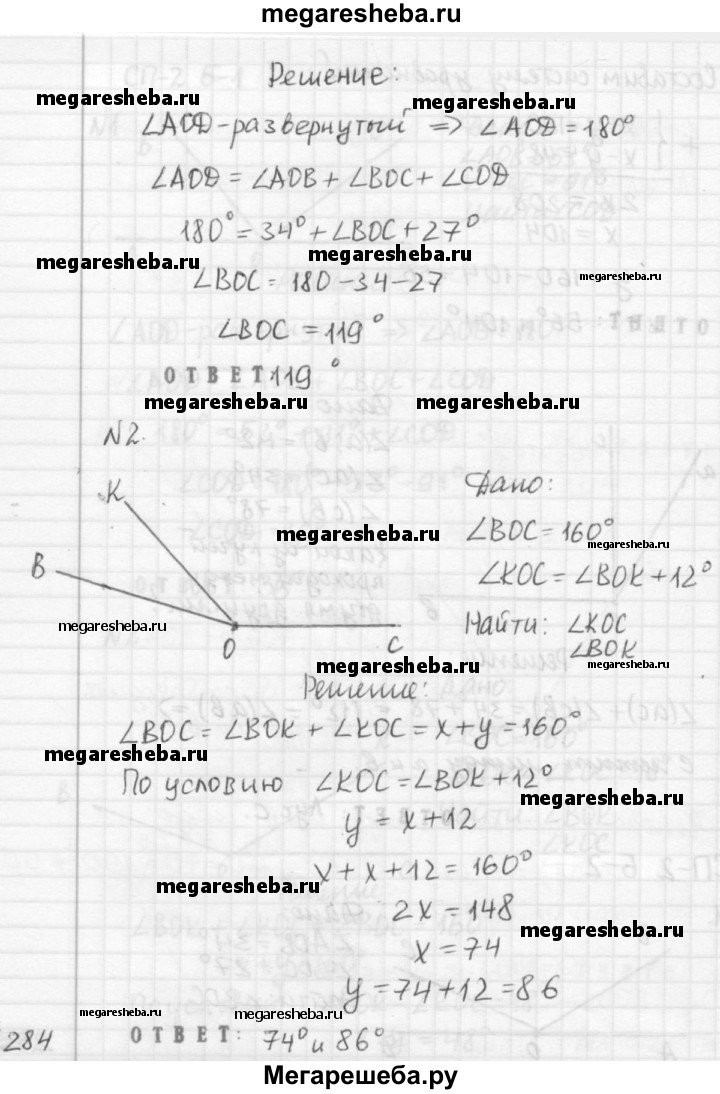 megaresheba.ru
Решение:
megaresheba.ru megaresheba.ru
∠AOD-развернутый => ∠AOD = 180°
∠AOD = ∠AOB + ∠BOC + ∠COD
180° = 34° + ∠BOC + 27°
megaresheba.ru megaresheba.ru megaresheba.ru
∠BOC = 180 - 34 - 27
∠BOC = 119°
ОТВЕТ: 119°
megaresheba.ru megaresheba.ru
N2.
K
Дано:
megaresheba.ru
∠BOC = 160°
megaresheba.ru
B
∠KOC = ∠BOK + 12°
megaresheba.ru
Найти: ∠KOC
O C
∠BOK
megaresheba.ru megaresheba.ru
Решение:
∠BOC = ∠BOK + ∠KOC = x + y = 160°
megaresheba.ru
По условию ∠KOC = ∠BOK + 12°
megaresheba.ru
y = x + 12
x + x + 12 = 160°
megaresheba.ru
2x = 148
megaresheba.ru
x = 74
y = 74 + 12 = 86
megaresheba.ru megaresheba.ru
284
ОТВЕТ: 74° и 86°
Мегарешеба.ру